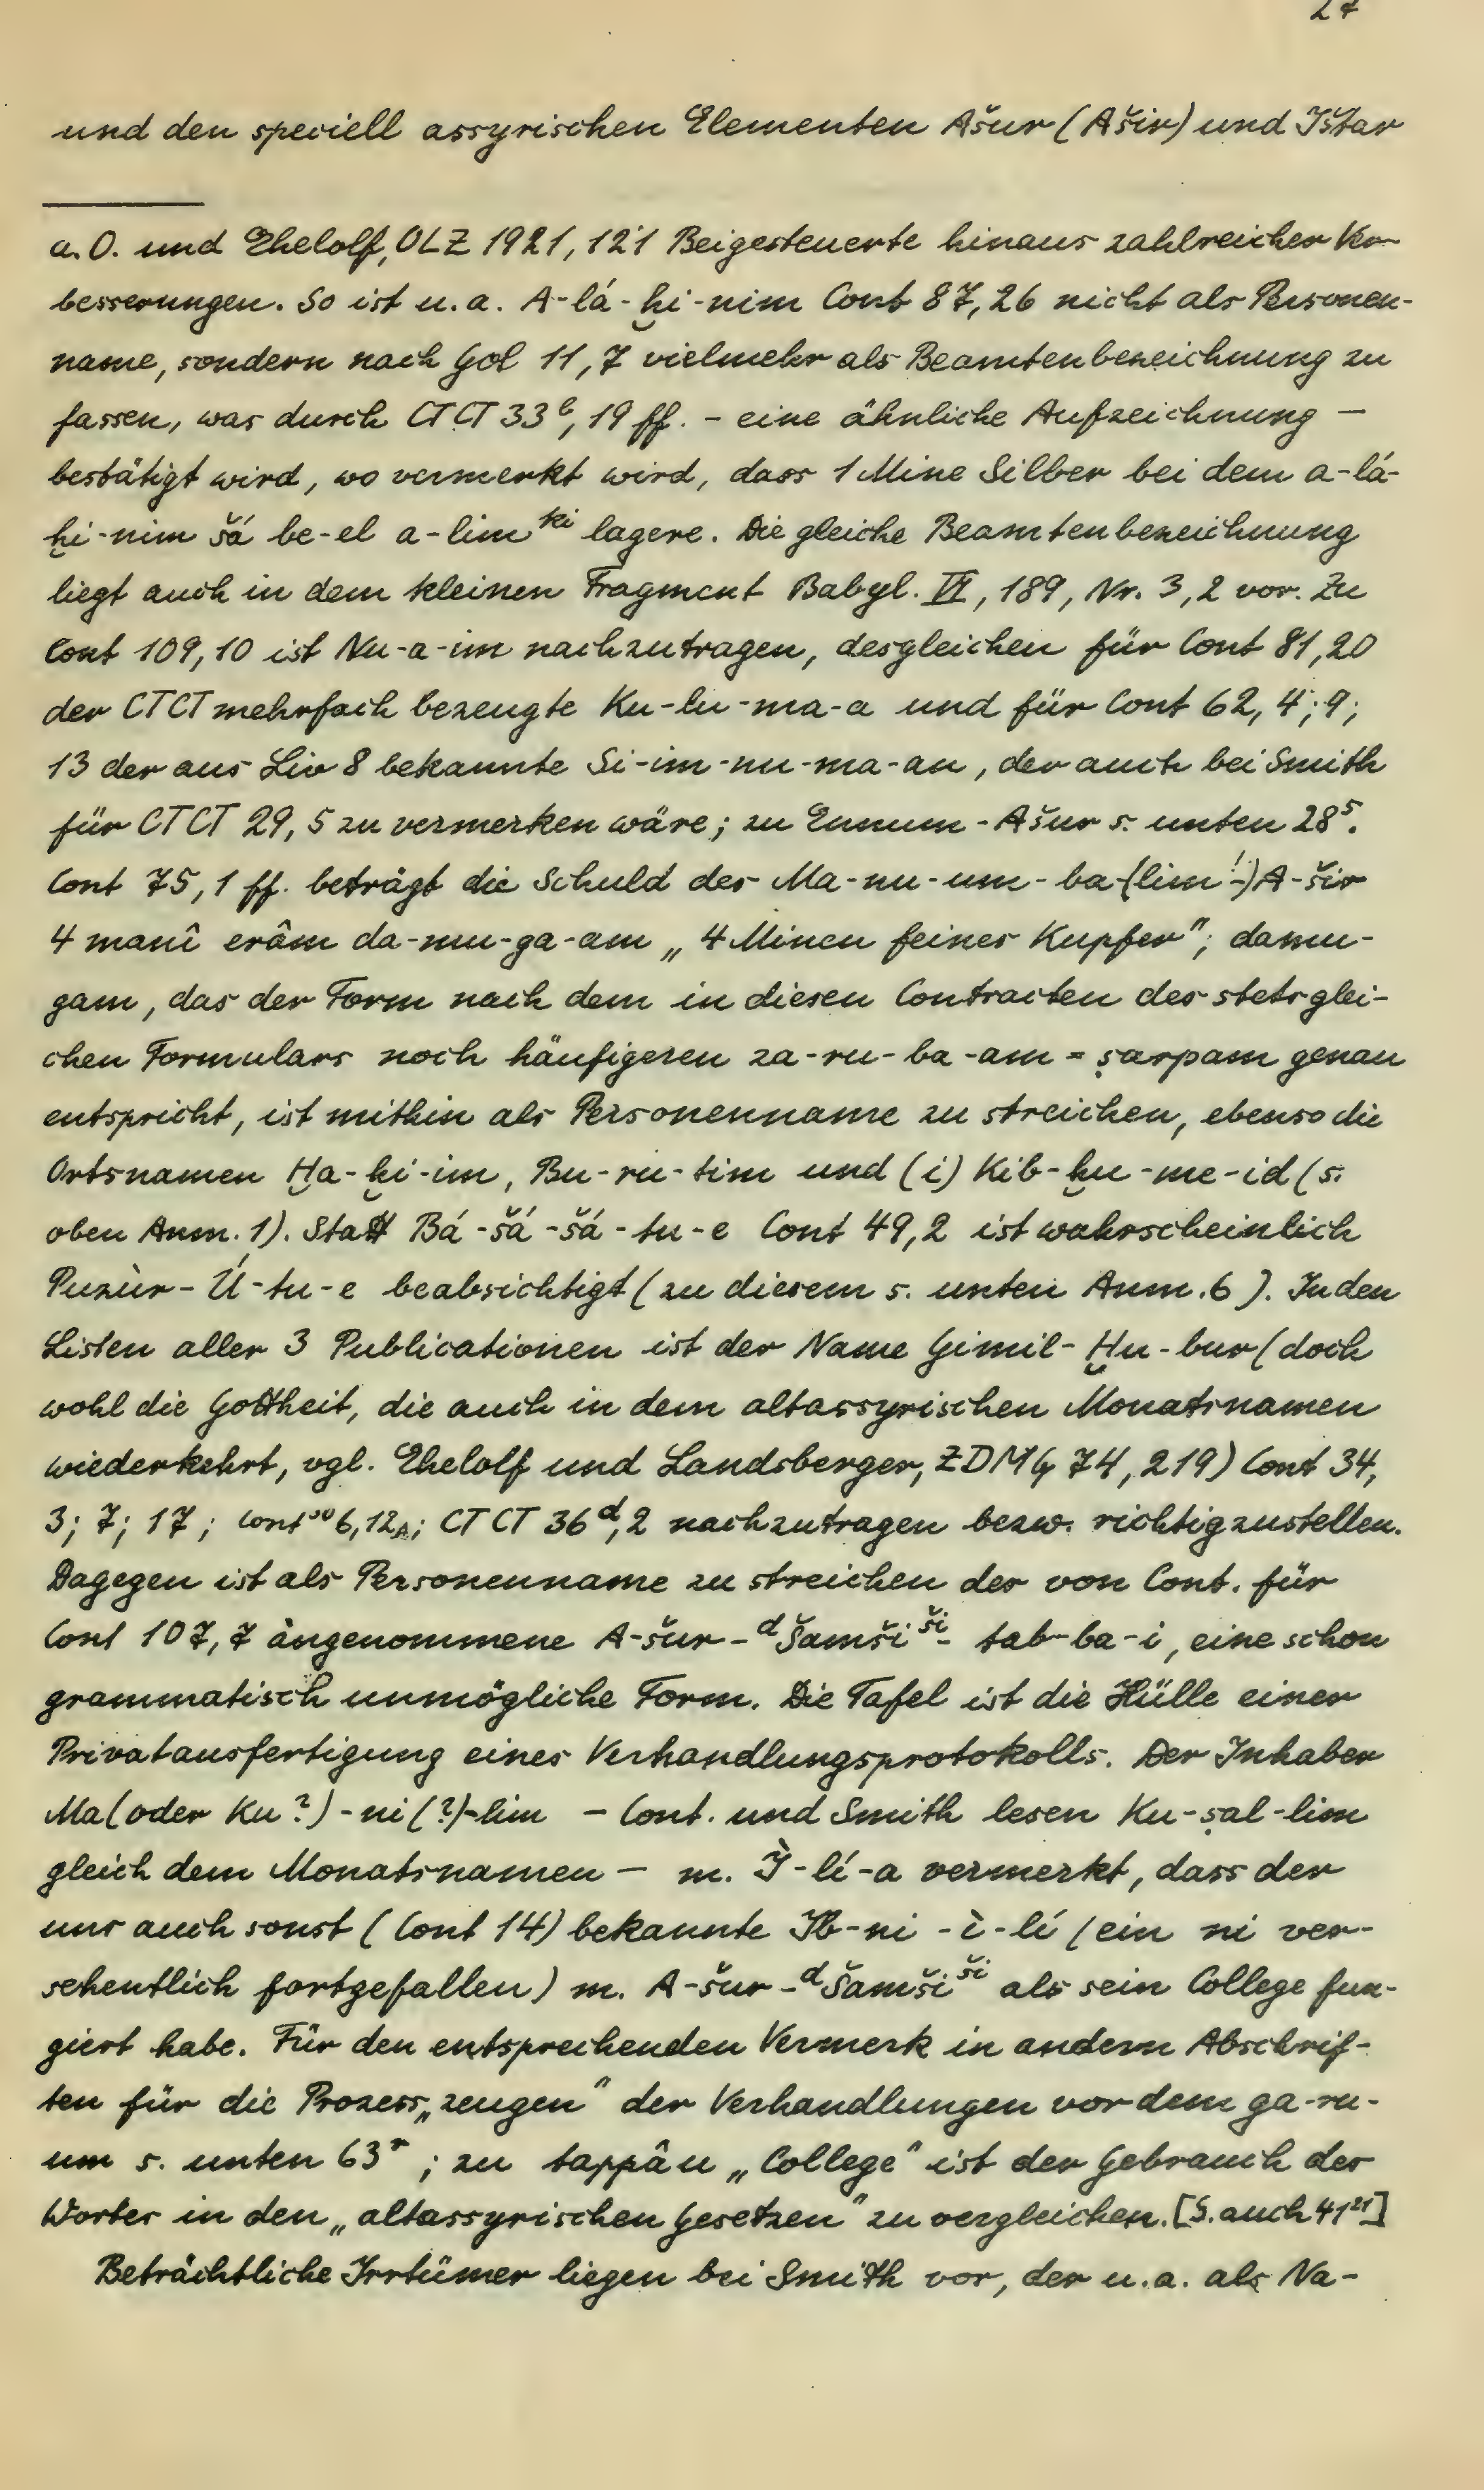 27
und den speciell assyrischen Elementen Ašur (Ašir) und Ištar
a. O. und Ehelolf, OLZ 1921, 121 Beigesteuerte hinaus zahlreicher Ver-
besserungen. So ist u. a. A-lá-ḫi-nim Cont 87, 26 nicht als Personen-
name, sondern nach Gol 11, 7 vielmehr als Beamtenbezeichnung zu
fassen, was durch CTCT 33ᵇ, 19 ff. – eine ähnliche Aufzeichnung –
bestätigt wird, wo vermerkt wird, dass 1 Mine Silber bei dem a-lá-
ḫi-nim šá be-el a-lim ᵏⁱ lagere. Die gleiche Beamtenbezeichnung
liegt auch in dem kleinen Fragment Babyl. VI, 189, Nr. 3, 2 vor. Zu
Cont 109, 10 ist Nu-a-im nachzutragen, desgleichen für Cont 81, 20
der CTCT mehrfach bezeugte Ku-lu-ma-a und für Cont 62, 4; 9;
13 der aus Liv 8 bekannte Si-im-nu-ma-an, der auch bei Smith
für CTCT 29, 5 zu vermerken wäre; zu Ennum-Ašur s. unten 28⁵.
Cont 75, 1 ff. beträgt die Schuld des Ma-nu-um-ba-(lim!-)A-šir
4 manî erâm da-mu-ga-am „4 Minen feines Kupfer"; damu-
gam, das der Form nach dem in diesen Contracten des stets glei-
chen Formulars noch häufigeren za-ru-ba-am = ṣarpam genau
entspricht, ist mithin als Personenname zu streichen, ebenso die
Ortsnamen Ḫa-ḫi-im, Bu-ru-tim und (i) Kib-ḫu-me-id (s.
oben Anm. 1). Statt Bá-šá-šá-tu-e Cont 49, 2 ist wahrscheinlich
Puzùr-Ú-tu-e beabsichtigt (zu diesem s. unten Anm. 6). In den
Listen aller 3 Publicationen ist der Name Gimil-Ḫu-bur (doch
wohl die Gottheit, die auch in dem altassyrischen Monatsnamen
wiederkehrt, vgl. Ehelolf und Landsberger, ZDMG 74, 219) Cont 34,
3; 7; 17; Cont³⁰ 6, 12A; CTCT 36ᵈ, 2 nachzutragen bezw. richtigzustellen.
Dagegen ist als Personenname zu streichen der von Cont. für
Cont 107, 7 angenommene A-šur-ᵈŠamši ˢ̌ⁱ- tab-ba-i, eine schon
grammatisch unmögliche Form. Die Tafel ist die Hülle einer
Privatausfertigung eines Verhandlungsprotokolls. Der Inhaber
Ma(oder Ku?)-ni(?)-lim – Cont. und Smith lesen Ku-ṣal-lim
gleich dem Monatsnamen – m. Ì-lí-a vermerkt, dass der
uns auch sonst (Cont 14) bekannte Ib-ni-ì-lí (ein ni ver-
sehentlich fortgefallen) m. A-šur-ᵈŠamši ˢ̌ⁱ als sein College fun-
giert habe. Für den entsprechenden Vermerk in andern Abschrif-
ten für die Prozess„zeugen" der Verhandlungen vor dem ga-ru-
um s. unten 63ʳ; zu tappâu „College" ist der Gebrauch des
Wortes in den „altassyrischen Gesetzen" zu vergleichen. [S. auch 41²¹]
Beträchtliche Irrtümer liegen bei Smith vor, der u. a. als Na-